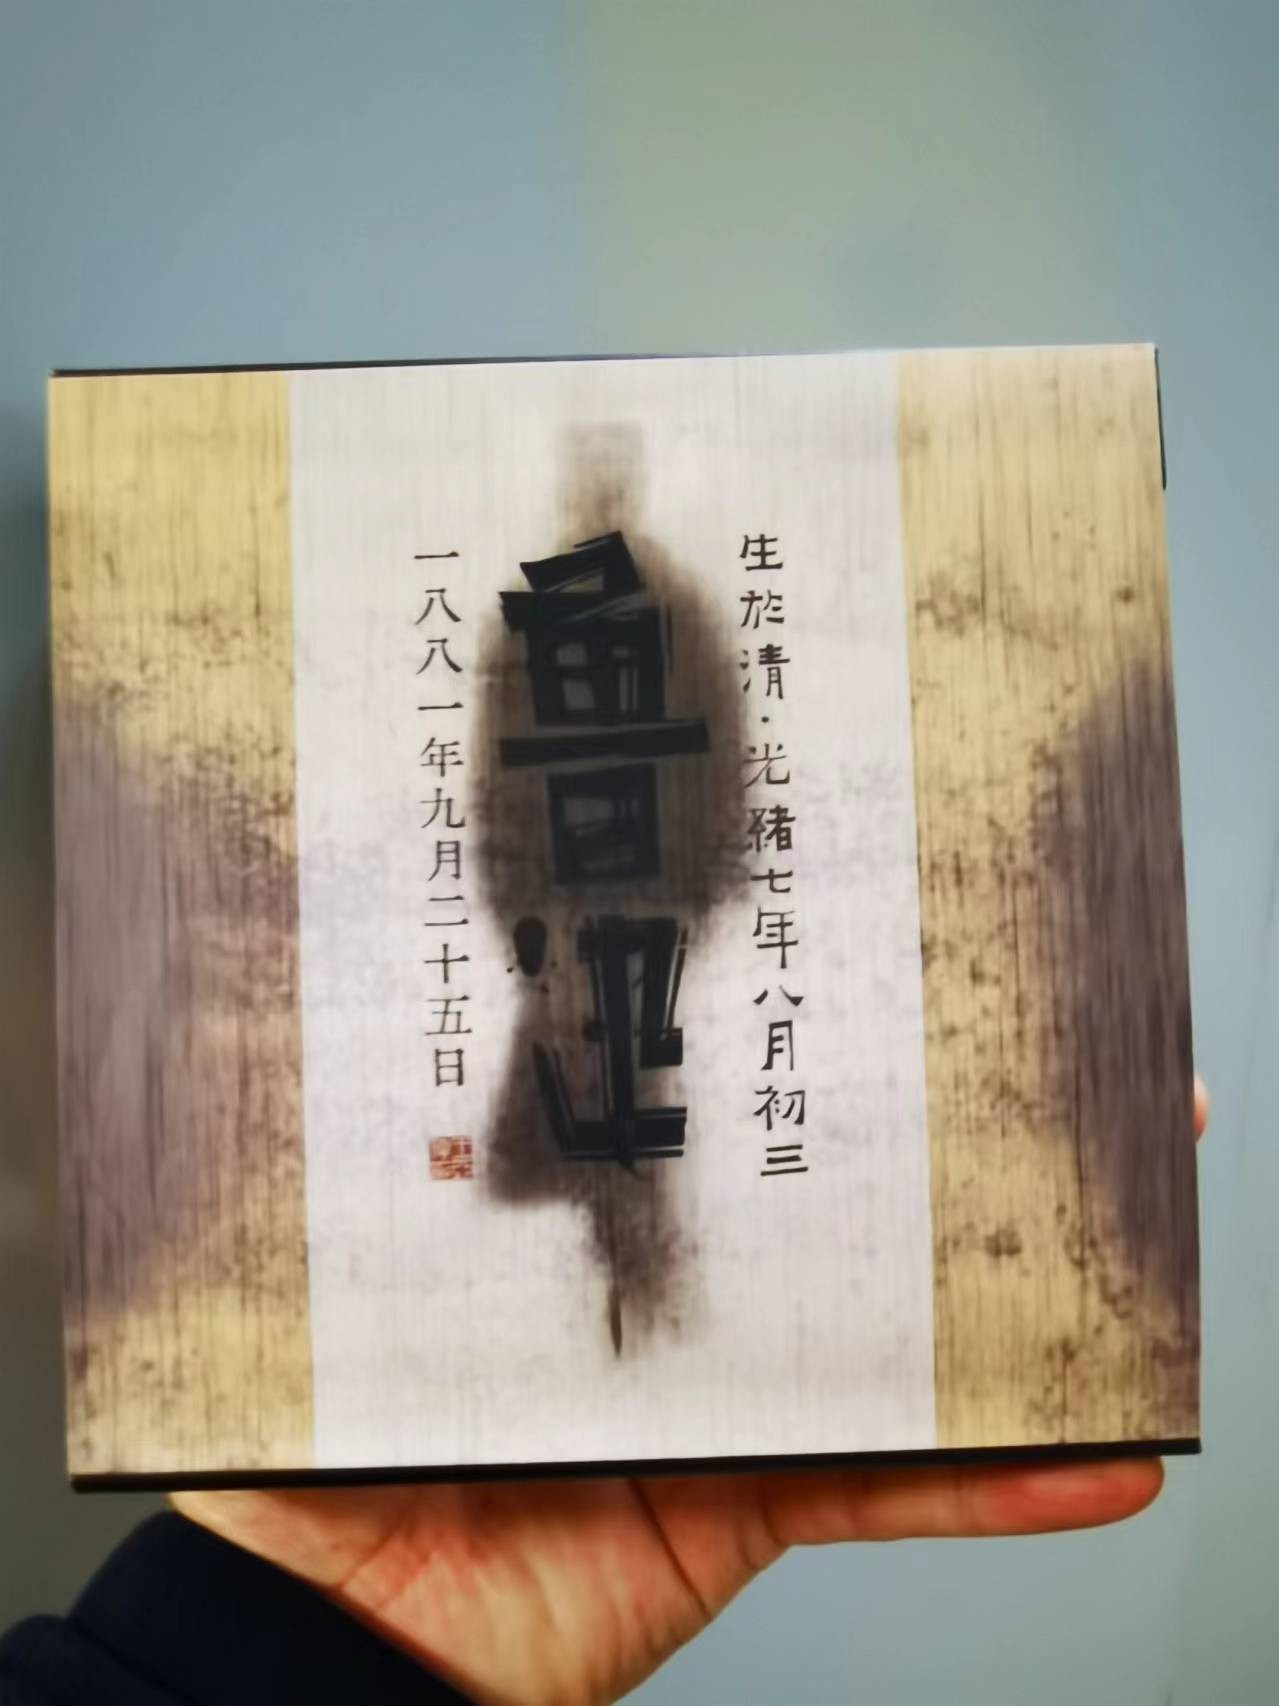 生於清·光緒七年八月初三
魯迅
一八八一年九月二十五日